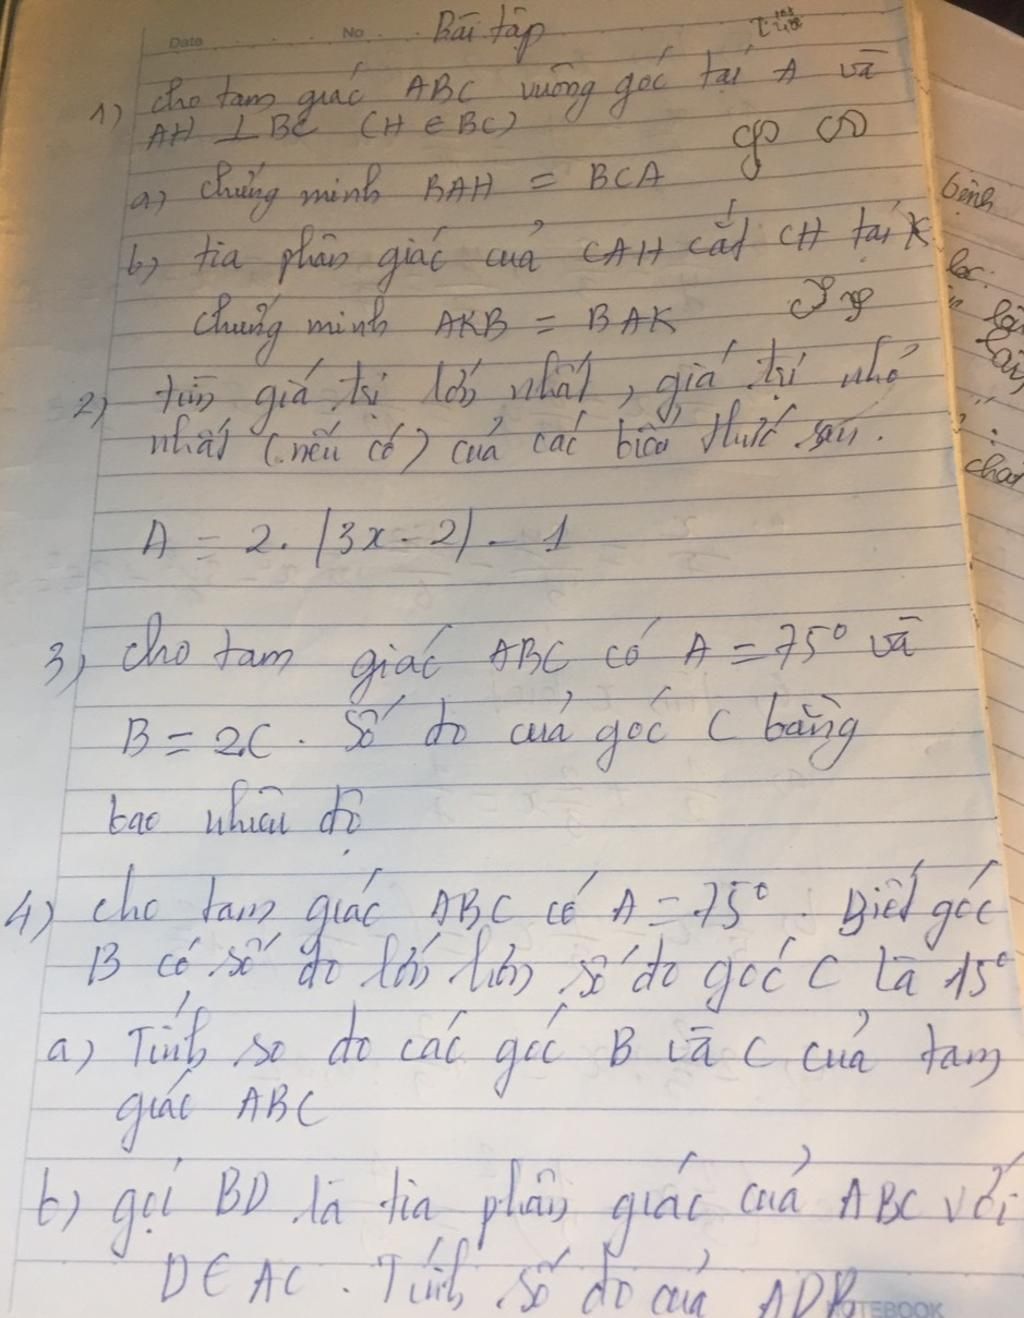 Date No Bài tập
1) cho tam giác ABC vuông góc tại A và
AH ⊥ BC (H ∈ BC)
a) chứng minh BAH = BCA
b) tia phân giác của CAH cắt CH tại K
chứng minh AKB = BAK
2) tìm giá trị lớn nhất, giá trị nhỏ
nhất (nếu có) của các biểu thức sau.
A = 2. |3x - 2| - 1
3) cho tam giác ABC có A = 75° và
B = 2C. Số đo của góc C bằng
bao nhiêu độ
4) cho tam giác ABC có A = 75°. Biết góc
B có số đo lớn hơn số đo góc C là 15°
a) Tính số đo các góc B và C của tam
giác ABC
b) gọi BD là tia phân giác của ABC với
D ∈ AC. Tính số đo của ADB
NOTEBOOK
bệnh